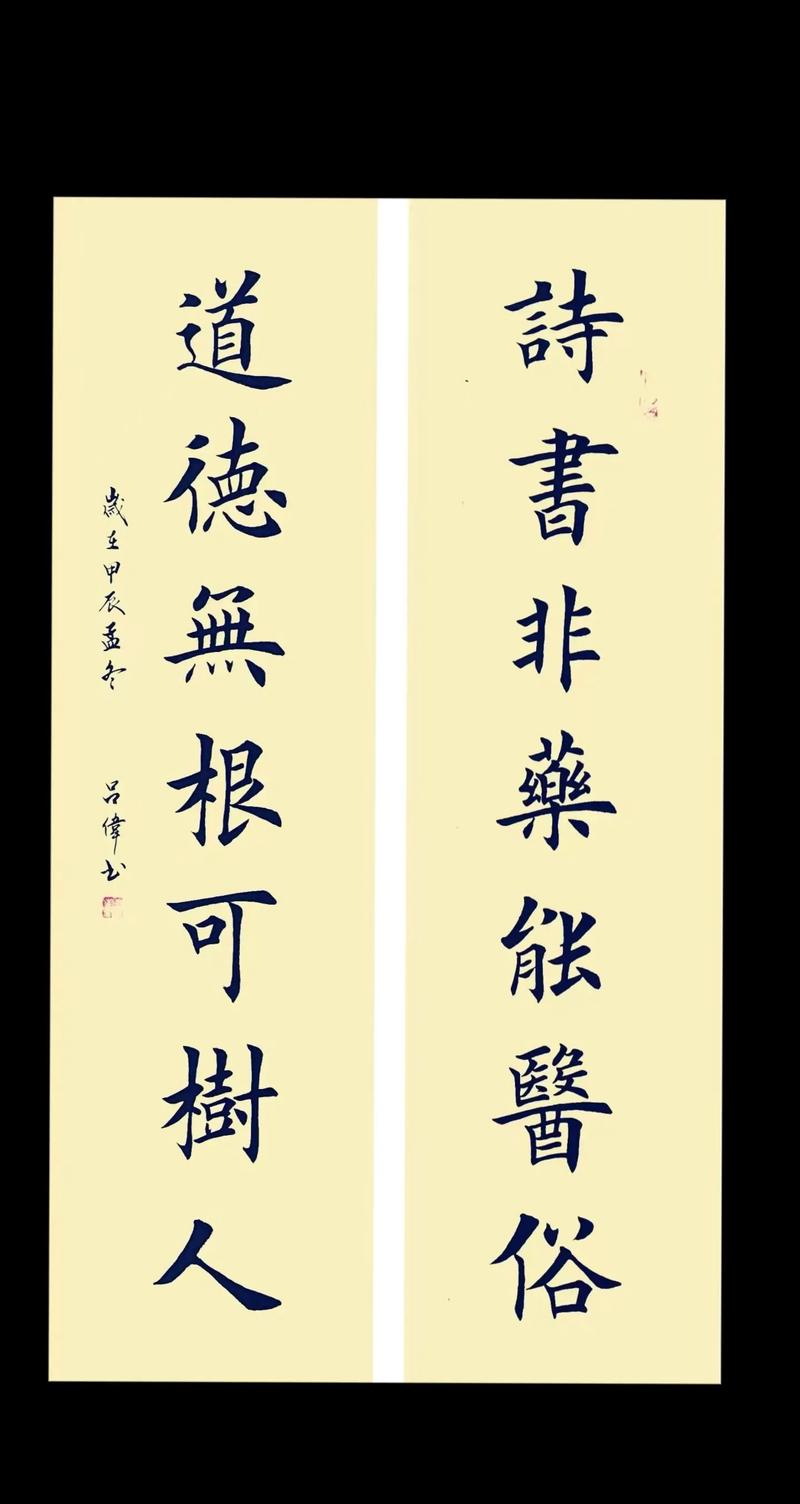 詩書非藥能醫俗
道德無根可樹人
歲在甲辰孟冬 吕偉书